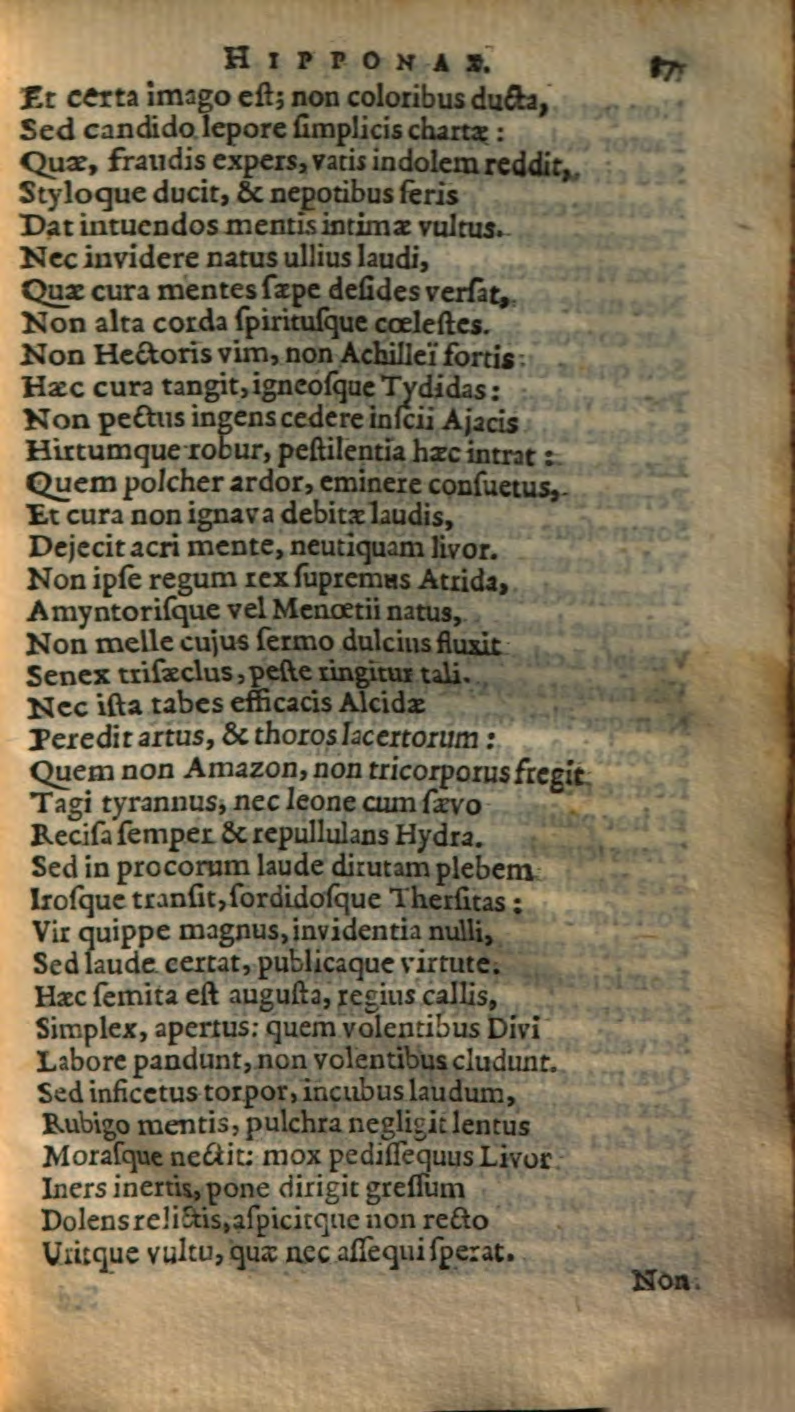 HIPPONAX.
Et certa imago eſt; non coloribus ducta,
Sed candido lepore ſimplicis chartæ:
Quæ, fraudis expers, vatis indolem reddit,
Styloque ducit, & nepotibus ſeris
Dat intuendos mentis intimæ vultus.
Nec invidere natus ullius laudi,
Quæ cura mentes ſæpe deſides verſat,
Non alta corda ſpirituſque cœleſtes.
Non Hectoris vim, non Achilleï fortis
Hæc cura tangit, igneoſque Tydidas:
Non pectus ingens cedere inſcii Ajacis
Hirtumque robur, peſtilentia hæc intrat:
Quem polcher ardor, eminere conſuetus,
Et cura non ignava debitæ laudis,
Dejecit acri mente, neutiquam livor.
Non ipſe regum rex ſupremus Atrida,
Amyntoriſque vel Menœtii natus,
Non melle cujus ſermo dulcius fluxit
Senex triſæclus, peſte ringitur tali.
Nec iſta tabes efficacis Alcidæ
Peredit artus, & thoros lacertorum:
Quem non Amazon, non tricorporus fregit
Tagi tyrannus, nec leone cum ſævo
Reciſa ſemper & repullulans Hydra.
Sed in procorum laude dirutam plebem
Iroſque tranſit, ſordidoſque Therſitas:
Vir quippe magnus, invidentia nulli,
Sed laude certat, publicaque virtute.
Hæc ſemita eſt auguſta, regius callis,
Simplex, apertus: quem volentibus Divi
Labore pandunt, non volentibus cludunt.
Sed inficetus torpor, incubus laudum,
Rubigo mentis, pulchra negligit lentus
Moraſque nectit: mox pediſſequus Livor
Iners inertis, pone dirigit greſſum
Dolens relictis, aſpicitque non recto
Uritque vultu, quæ nec aſſequi ſperat.
Non